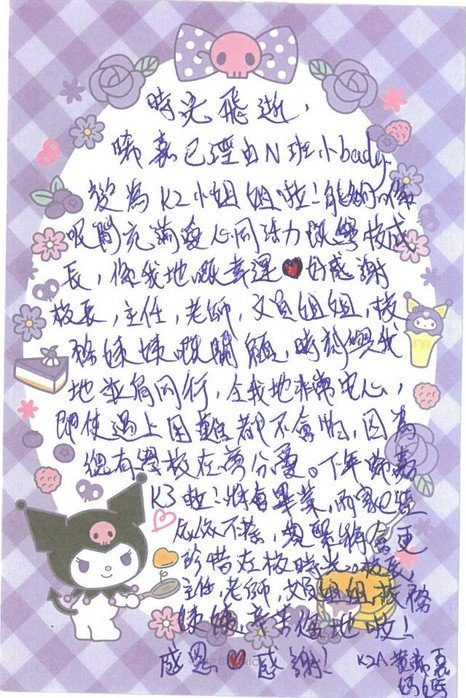 時光飛逝，
晞嘉已經由N班小bady
變為K2小姐姐啦！能夠係
呢間充滿愛心同活力既學校成
長，你我地嘅幸運❤好感謝
校長，主任，老師，文員姐姐，校
務妹妹嘅關顧，時刻與我
地並肩同行，令我地非常安心，
即使遇上困難都不害怕，因為
總有學校在旁分憂。下年晞嘉
K3啦！就有畢業，而家已經
好依依不捨，
珍惜在校時光。校長，
主任，老師，文員姐姐，校務
妹妹，辛苦你地啦！
感恩❤感謝！ K2A 黃晞嘉
媽媽